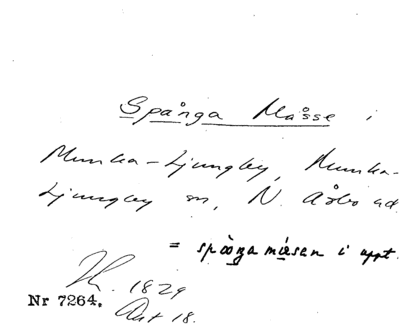 Spånga Måsse i
Munka-Ljungby, Munka-
Ljungby sn, N. Åsbo hd.
= i uppt.
1829
Akt 18.
Nr 7264.